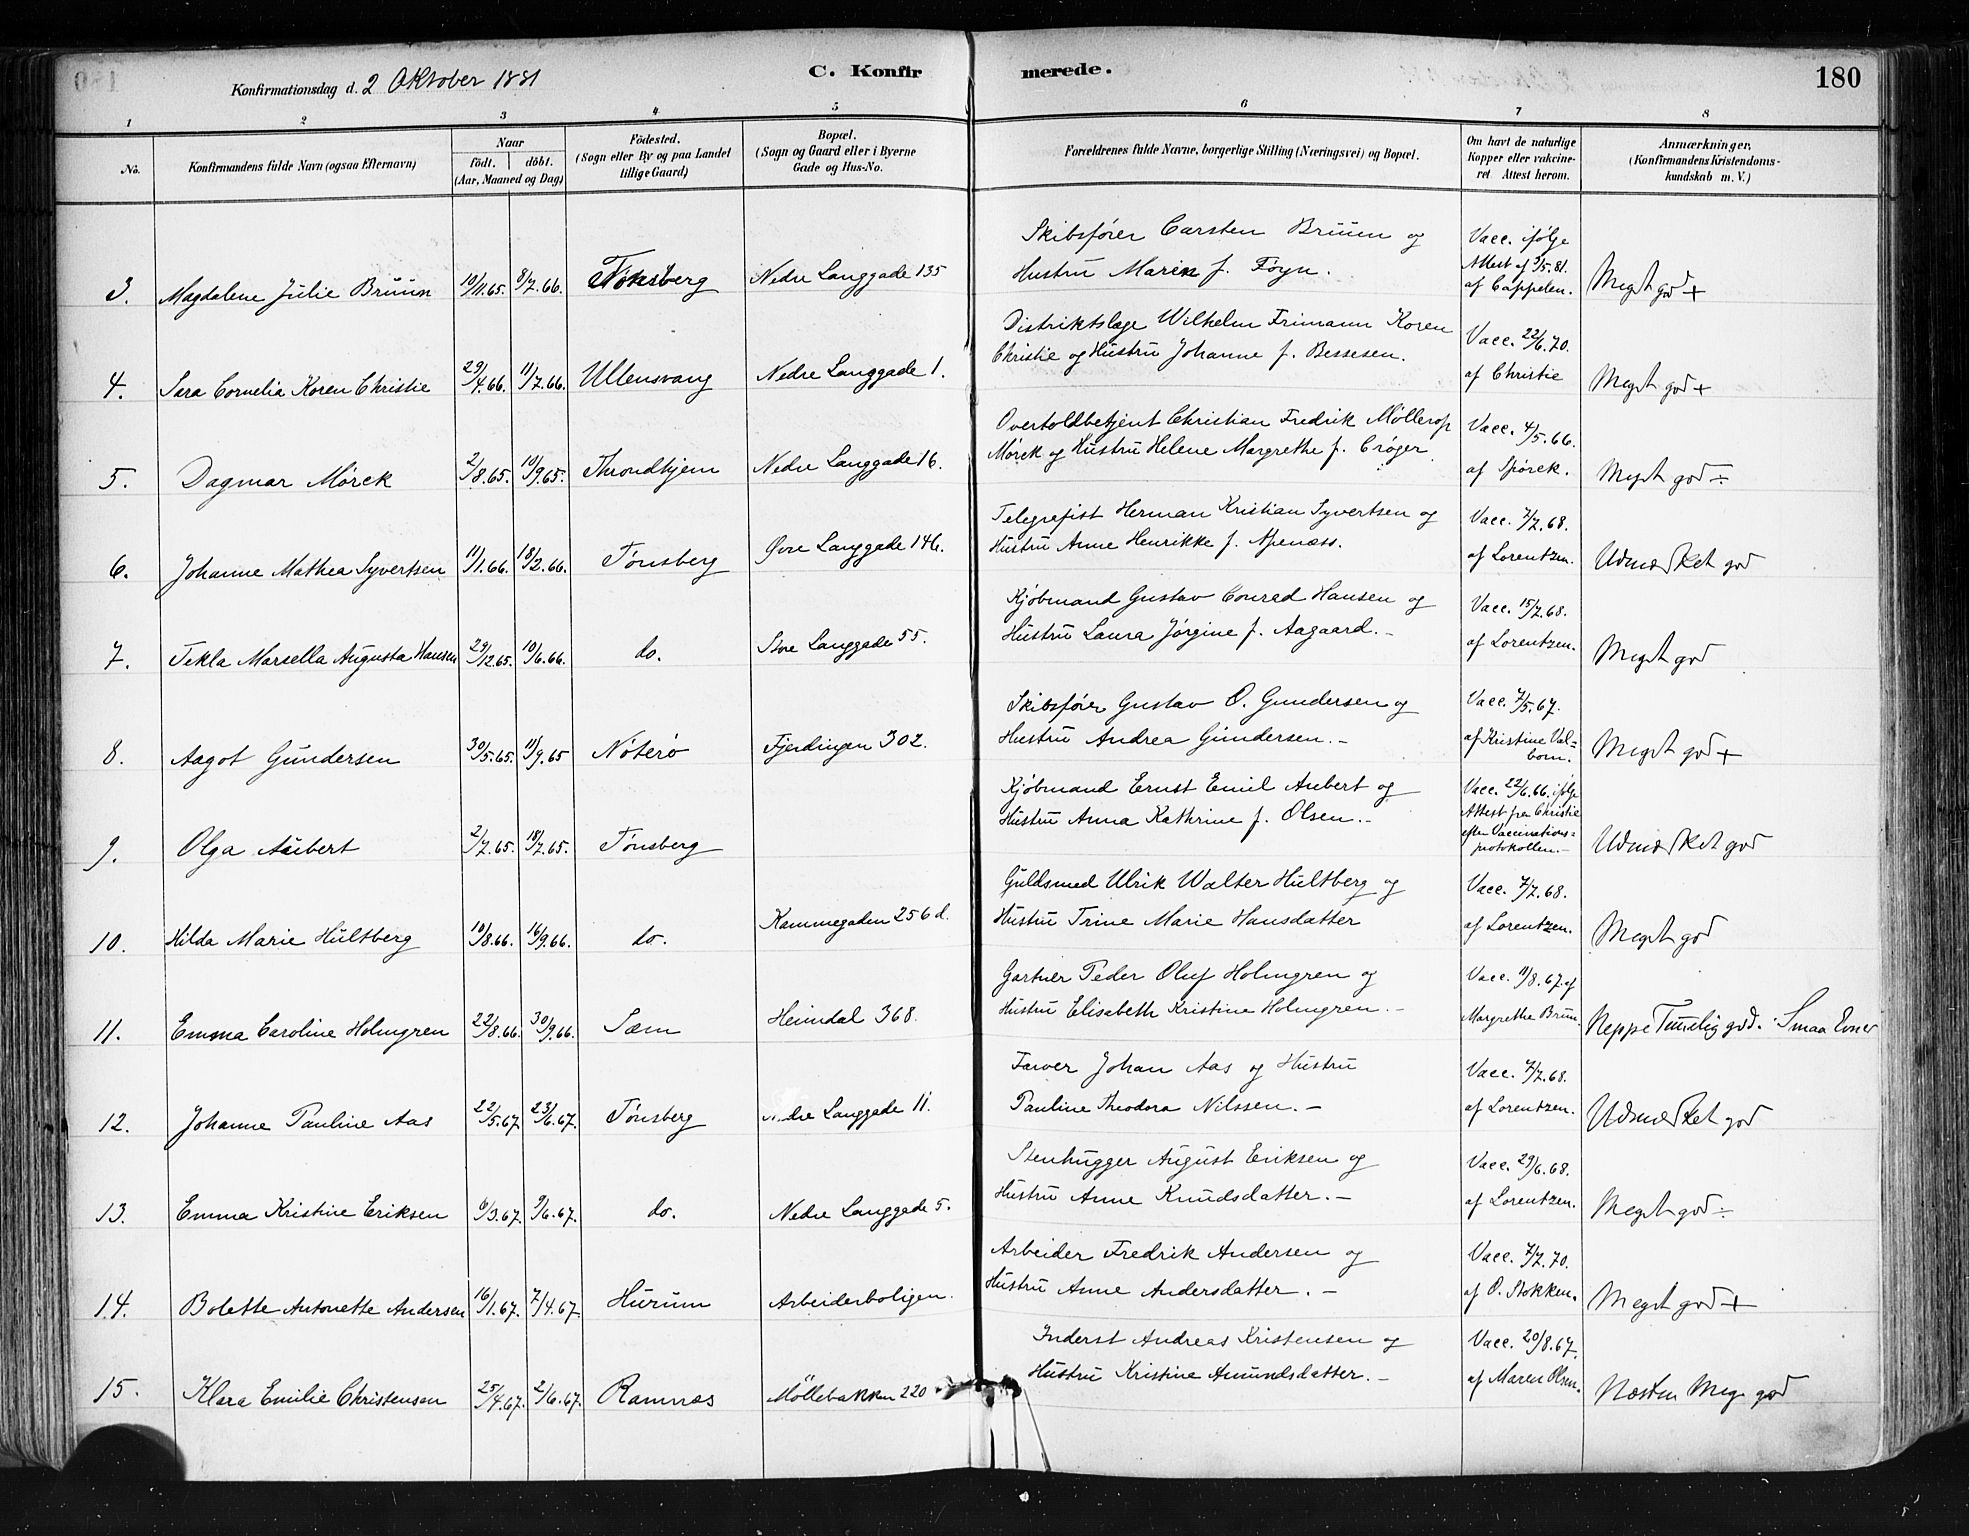 180
Konfirmationsdag d. 2 Oktober 1881
C. Konfirmerede.
1 2 3 4 5 6 7 8
No.
Konfirmandens fulde Navn (ogsaa Efternavn)
Naar
födt. döbt.
(Aar, Maaned og Dag)
Födested.
(Sogn eller By og paa Landet
tillige Gaard)
Bopæl.
(Sogn og Gaard eller i Byerne
Gade og Hus-No.
Forældrenes fulde Navne, borgerlige Stilling (Næringsvei) og Bopæl.
Om havt de naturlige
Kopper eller vakcine-
ret Attest herom.
Anmærkninger,
(Konfirmandens Kristendoms-
kundskab m. V.)
3. Magdalene Julie Bruun 10/11.65. 8/7.66. Tønsberg Nedre Langgade 135
Skibsfører Carsten Bruun og
Hustru Maren f. Føyn.
Vacc. ifølge
Attest af 3/5.81.
af Cappelen.
Meget god +
4. Sara Cornelia Koren Christie 29/4.66. 11/7.66. Ullensvang Nedre Langgade 1.
Distriktslæge Wilhelm Frimann Koren
Christie og Hustru Johanne f. Bessesen.
Vacc. 22/6.70.
af Christie
Meget god +
5. Dagmar Mørck 2/8.65. 10/9.65. Throndhjem Nedre Langgade 16.
Overtoldbetjent Christian Fredrik Møllerop
Mørck og Hustru Helene Margrethe f. Crøger
Vacc. 4/5.66.
af Spørck.
Meget god ÷
6. Johanne Mathea Syvertsen 11/1.66. 18/2.66. Tønsberg Øvre Langgade 146.
Telegrafist Herman Kristian Syvertsen og
Hustru Anne Henrikke f. Apenæss.
Vacc. 7/7.68.
af Lorentzen.
Udmærket god
7. Tekla Marsella Augusta Hansen 29/12.65. 10/6.66. do. Store Langgade 55.
Kjøbmand Gustav Conrad Hansen og
Hustru Laura Jørgine f. Aagaard. –
Vacc. 15/7.68.
af Lorentzen.
Meget god
8. Aagot Gundersen 30/5.65. 11/9.65 Nøterø Fjerdingen 302.
Skibsfører Gustav O. Gundersen og
Hustru Andrea Gundersen. –
Vacc. 7/5.67.
af Kristine Val=
born.
Meget god +
9. Olga Aubert 2/7.65. 18/7.65. Tønsberg
Kjøbmand Ernst Emil Aubert og
Hustru Anna Kathrine f. Olsen. –
Vacc. 22/6.66. ifølge
Attest fra Christie
efter Vaccinations=
protokollen. –
Udmærket god
10. Hilda Marie Hultberg 10/8.66. 16/9.66. do. Kammegaden 256 d.
Guldsmed Ulrik Walter Hultberg og
Hustru Trine Marie Hansdatter
Vacc. 7/7.68.
af Lorentzen.
Meget god
11. Emma Caroline Holmgren 22/8.66. 30/9.66. Sæm Heimdal 368.
Gartner Peder Oluf Holmgren og
Hustru Elisabeth Kristine Holmgren. –
Vacc. 11/8.67. af
Margrethe Brun.
Neppe Temelig god. Smaa Evner
12. Johanne Pauline Aas 22/5.67. 23/6.67. Tønsberg Nedre Langgade 11.
Farver Johan Aas og Hustru
Pauline Theodora Nilssen. –
Vacc. 7/7.68.
af Lorentzen.
Udmærket god
13. Emma Kristine Eriksen 6/3.67. 9/6.67. do. Nedre Langgade 5.
Stenhugger August Eriksen og
Hustru Anne Knudsdatter. –
Vacc. 29/6.68.
af Lorentzen.
Meget god ÷
14. Bolette Antonette Andersen 16/1.67. 7/4.67. Hurum Arbeiderboligen.
Arbeider Fredrik Andersen og
Hustru Anne Andersdatter. –
Vacc. 7/7.70.
af O. Stokken.
Meget god +
15. Klara Emilie Christensen 25/4.67. 2/6.67. Ramnæs Möllebakken 220
Inderst Andreas Kristensen og
Hustru Kristine Amundsdatter. –
Vacc. 20/8.67.
af Maren Olsen.
Næsten Meg. god